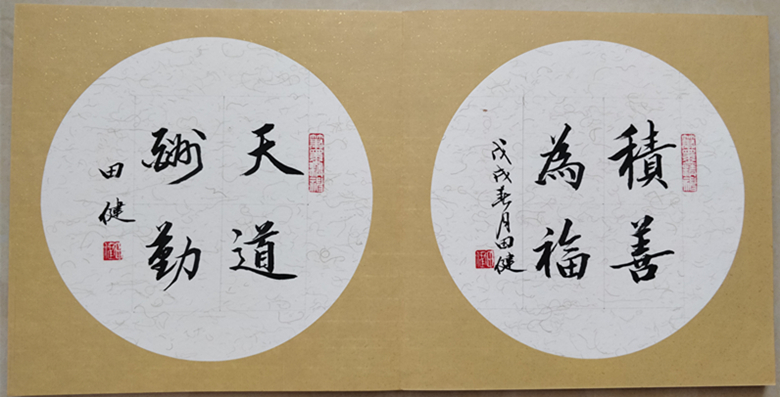 積善
為福
戊戌春月田健
天道
酬勤
田健